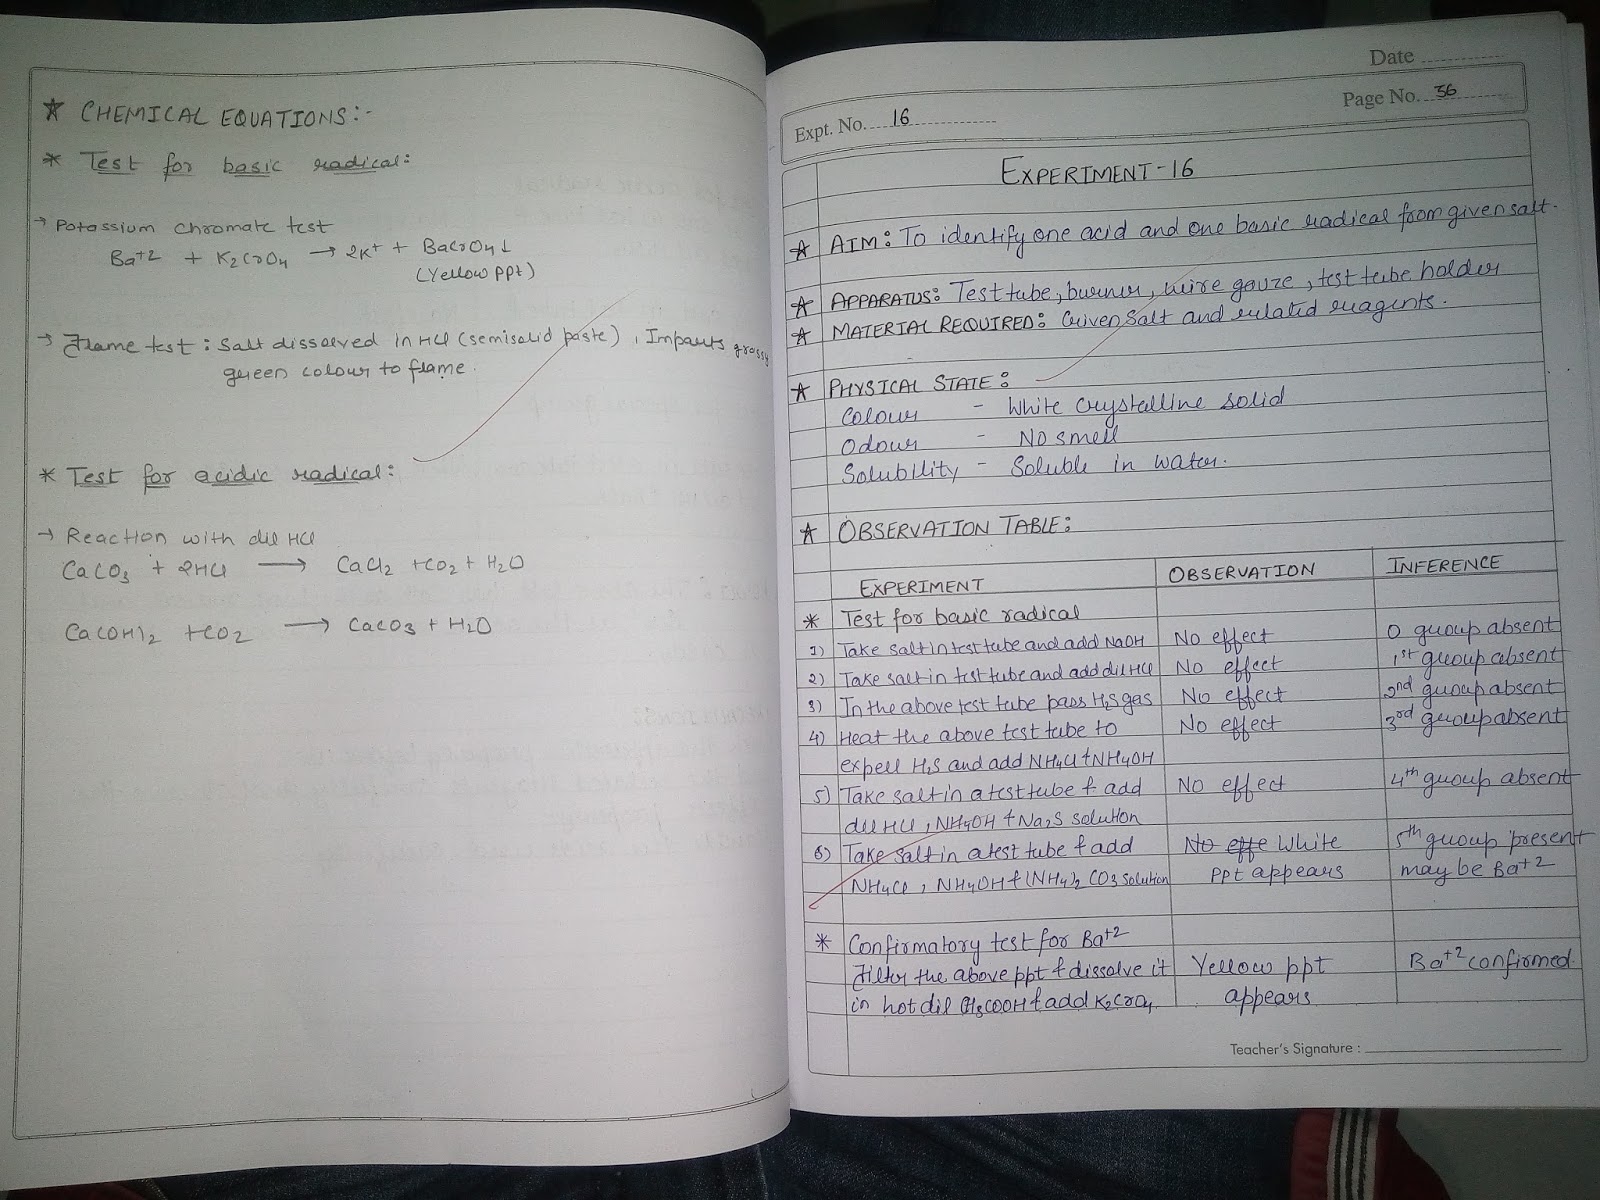 ★ CHEMICAL EQUATIONS:-
* Test for basic radical:
→ Potassium chromate test
Ba+2 + K2CrO4 → 2K+ + BaCrO4↓
(Yellow ppt)
→ Flame test: Salt dissolved in HCl (semisolid paste), Imparts grassy
green colour to flame.
* Test for acidic radical:
→ Reaction with dil HCl
CaCO3 + 2HCl → CaCl2 + CO2 + H2O
Ca(OH)2 + CO2 → CaCO3 + H2O
Date
Page No. 36
Expt. No. 16
EXPERIMENT-16
★ AIM: To identify one acid and one basic radical from given salt.
★ APPARATUS: Test tube, burner, wire gauze, test tube holder
★ MATERIAL REQUIRED: Given Salt and related reagents.
★ PHYSICAL STATE:
Colour - White crystalline solid
Odour - No smell
Solubility - Soluble in water.
★ OBSERVATION TABLE:
EXPERIMENT OBSERVATION INFERENCE
* Test for basic radical
1) Take salt in test tube and add NaOH No effect 0 group absent
2) Take salt in test tube and add dil HCl No effect 1st group absent
3) In the above test tube pass H2S gas No effect 2nd group absent
4) Heat the above test tube to No effect 3rd group absent
expell H2S and add NH4Cl + NH4OH
5) Take salt in a test tube & add No effect 4th group absent
dil HCl, NH4OH + Na2S solution
6) Take salt in a test tube & add No effe White 5th group present
NH4Cl, NH4OH & (NH4)2 CO3 solution ppt appears may be Ba+2
* Confirmatory test for Ba+2
Filter the above ppt & dissolve it Yellow ppt Ba+2 confirmed.
in hot dil CH3COOH & add K2CrO4 appears
Teacher's Signature :